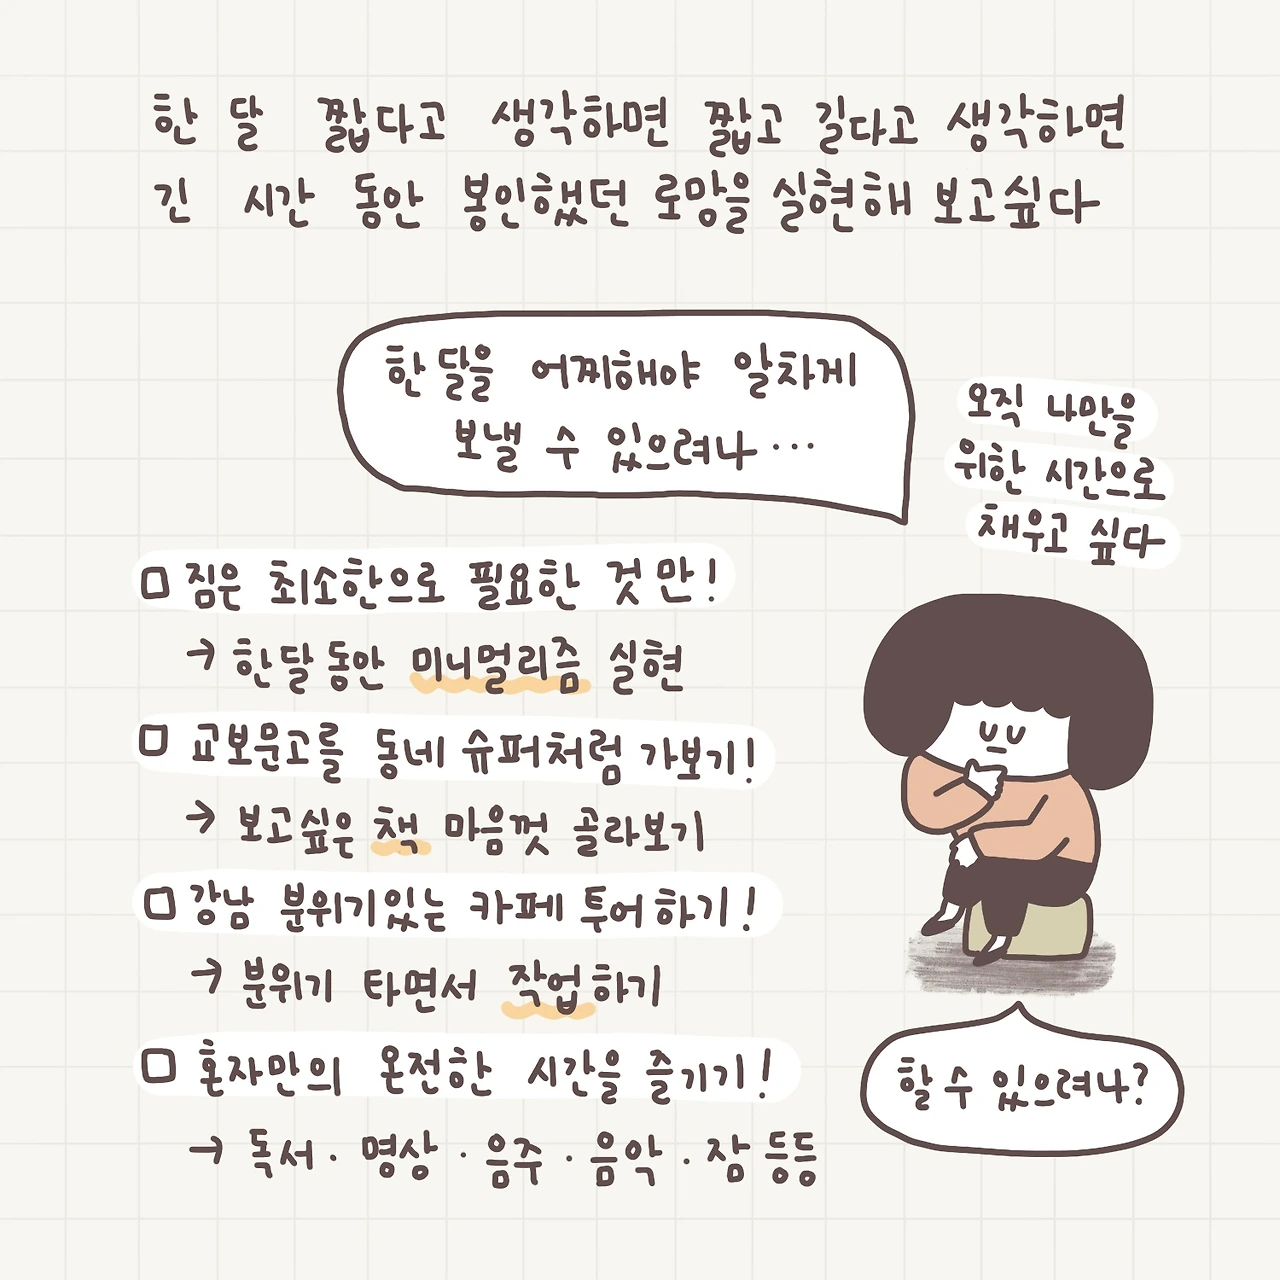 한 달 짧다고 생각하면 짧고 길다고 생각하면
긴 시간 동안 봉인했던 로망을 실현해 보고싶다
한 달을 어찌해야 알차게
보낼 수 있으려나...
오직 나만을
위한 시간으로
채우고 싶다
□ 짐은 최소한으로 필요한 것만!
→ 한달동안 미니멀리즘 실현
□ 교보문고를 동네 슈퍼처럼 가보기!
→ 보고싶은 책 마음껏 골라보기
□ 강남 분위기있는 카페 투어하기!
→ 분위기 타면서 작업하기
□ 혼자만의 온전한 시간을 즐기기!
→ 독서·명상·음주·음악·잠 등등
할 수 있으려나?